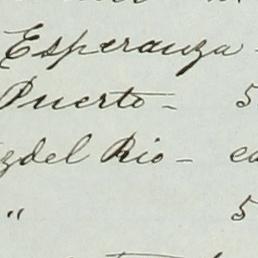 Esperanza -
Puerto - 5
zdel Rio - ea
" 5